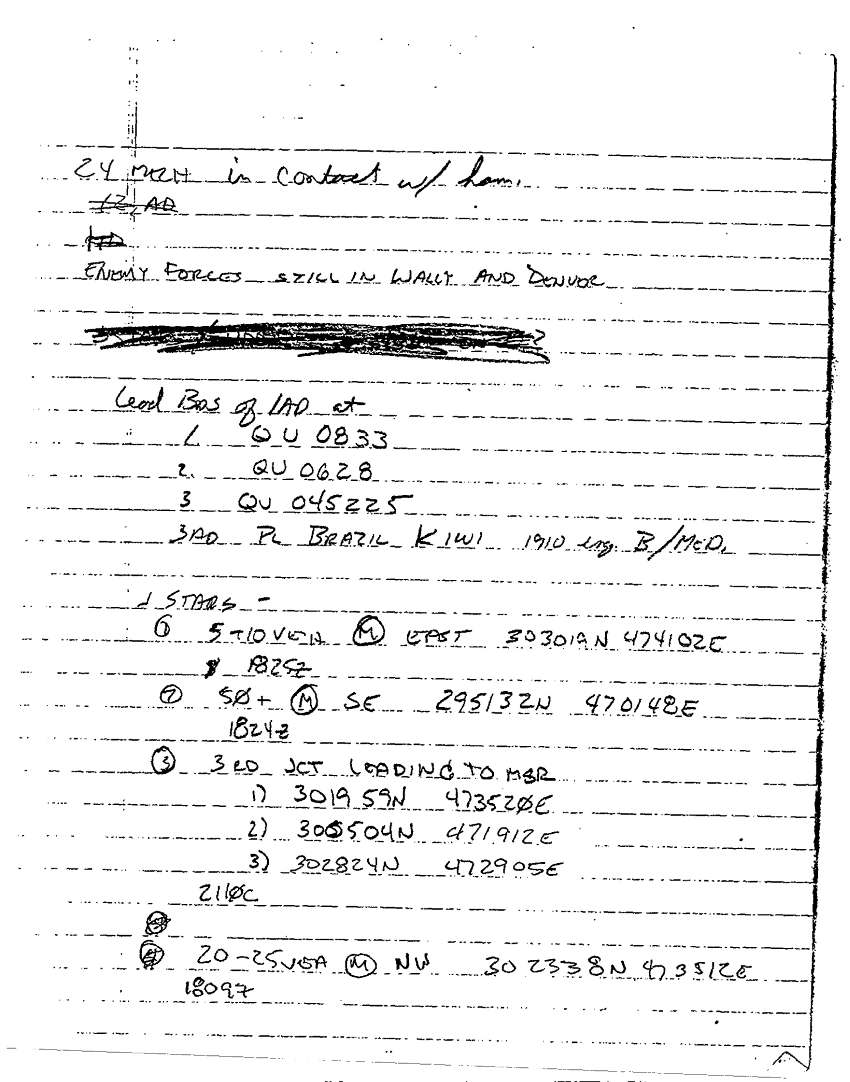 24 MECH in contact w/ ham.
12 AD
1AD
ENEMY FORCES STILL IN WALLY AND DENVER
Lead Bns of 1AD at
1. QU 0833
2. QU 0628
3 QU 045225
3AD PL BRAZIL KIWI 1910 eng. B/MED.
J STARS -
① 5-10 VEH Ⓜ EAST 303019N 474102E
1825Z
② 5Ø+ Ⓜ SE 295132N 470148E
1824Z
③ 3RD JCT LEADING TO MSR
1) 301959N 47352ØE
2) 300504N 471912E
3) 302824N 472905E
211ØC
④ 20-25 VEH Ⓜ NW 302338N 473512E
1809Z